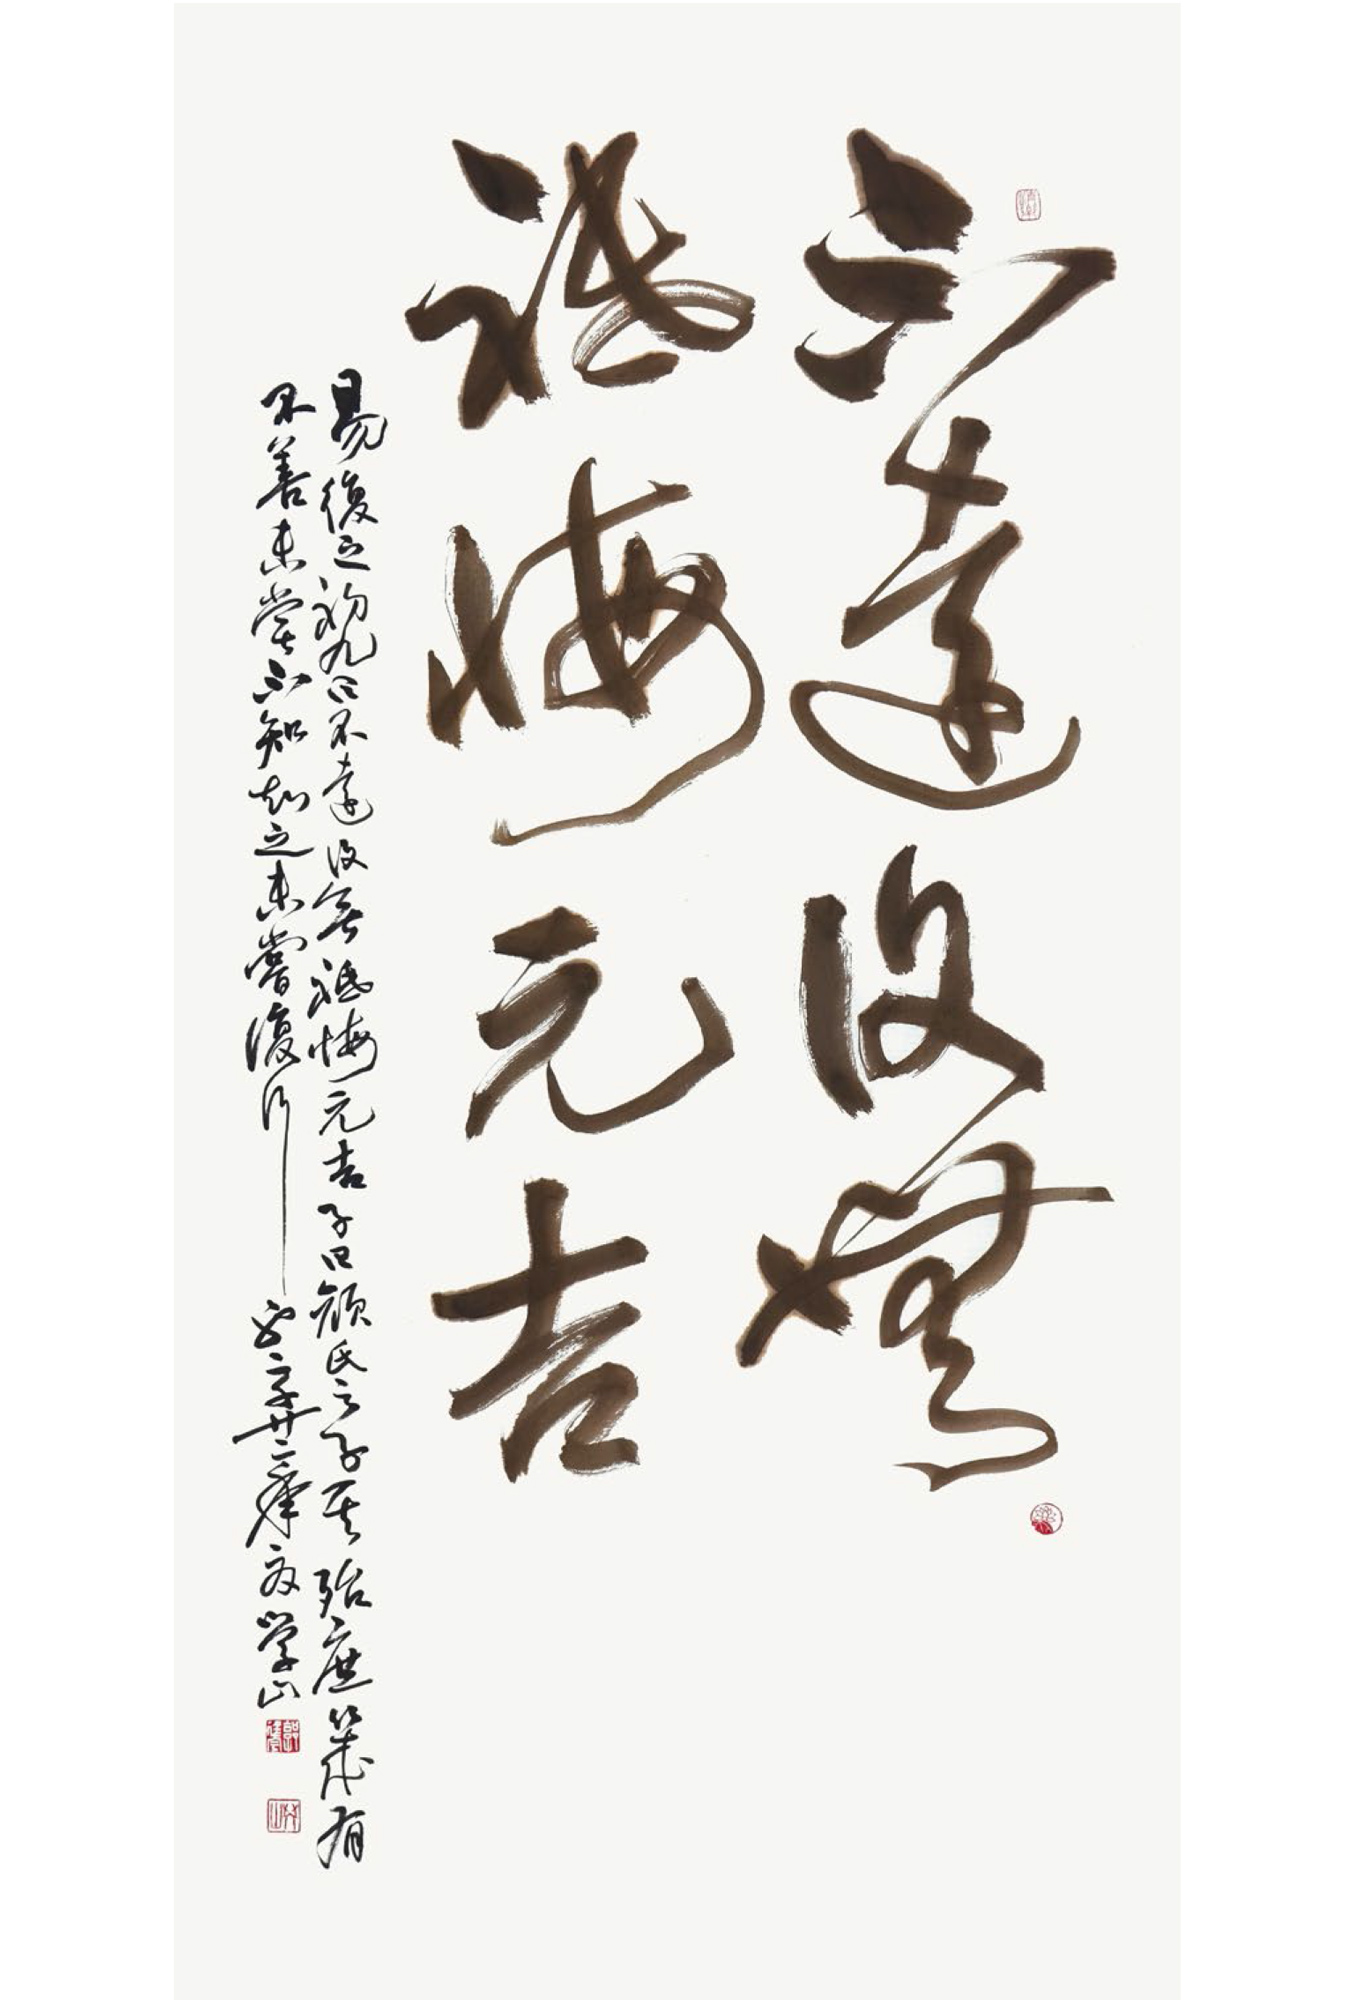 不遠復無
祗悔元吉
易復之初九曰不遠復無祗悔元吉子曰顔氏之子其殆庶幾有
不善未嘗不知知之未嘗復行 廿二 學山